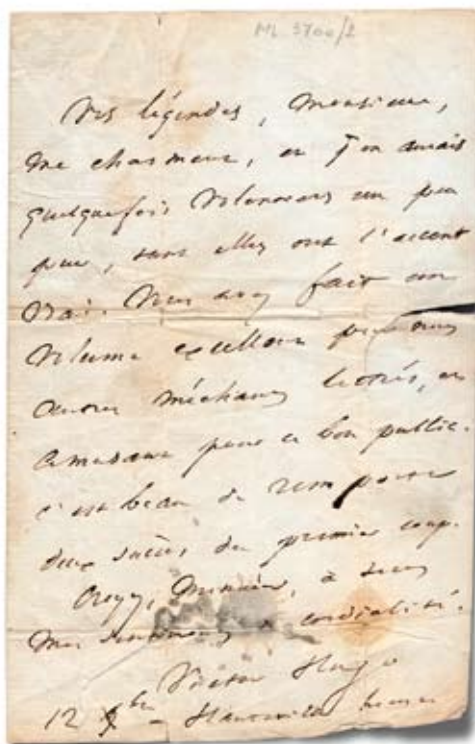 ML 3700/2
Vos légendes, Monsieur,
me charment, et j'en aurais
quelquefois volontiers un peu
peur, tant elles ont l'accent
vrai. Vous avez fait un
volume excellent pour nous
autres méchants lettrés, et
amusant pour ce bon public.
c'est beau de remporter
deux succès du premier coup.
Croyez, Monsieur, à tous
mes sentiments de cordialité.
Victor Hugo
12 9bre - Hauteville house